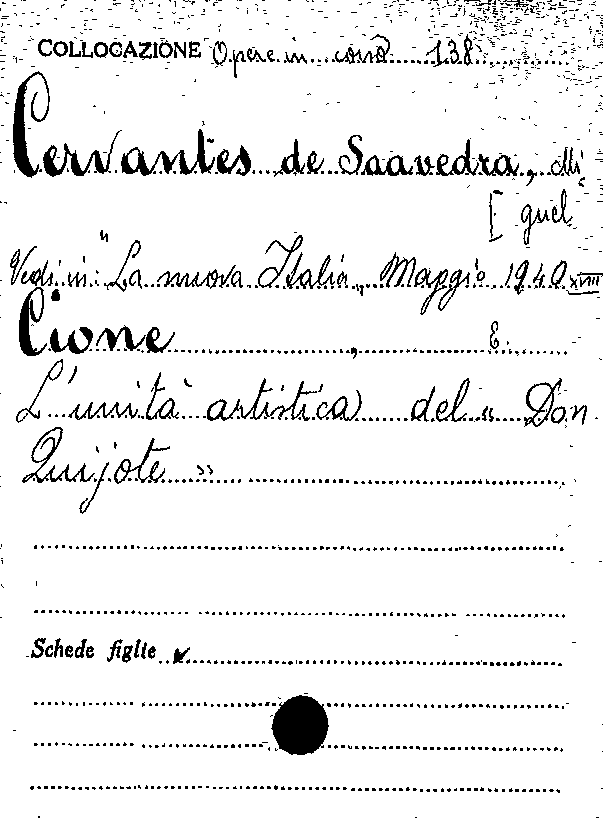 COLLOCAZIONE Opere in corso 138
Cervantes de Saavedra, Mi
[guel
Vedi in: "La nuova Italia„ Maggio 1940 XVIII
Cione, E.
L'unità artistica del « Don
Quijote »
Schede figlie ✔